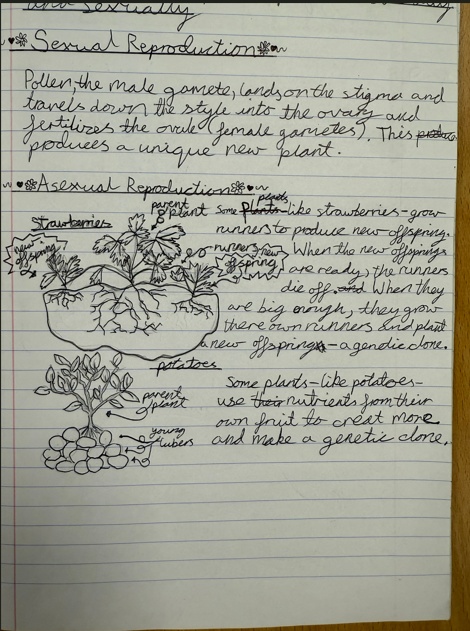 and sexually
Sexual Reproduction
Pollen, the male gamete, lands on the stigma and
travels down the style into the ovary and
fertilizes the ovule (female gametes). This produce
produces a unique new plant.
Asexual Reproduction
strawberries
parent
plant
new
offspring
runners
new
offspring
some plants plants-like strawberries-grow
runners to produce new offspring.
When the new offsprings
are ready, the runners
die off and When they
are big enough, they grow
there own runners and plant
a new offspring - a genetic clone.
potatoes
parent
plant
young
tubers
Some plants-like potatoes-
use their nutrients from their
own fruit to creat more
and make a genetic clone.